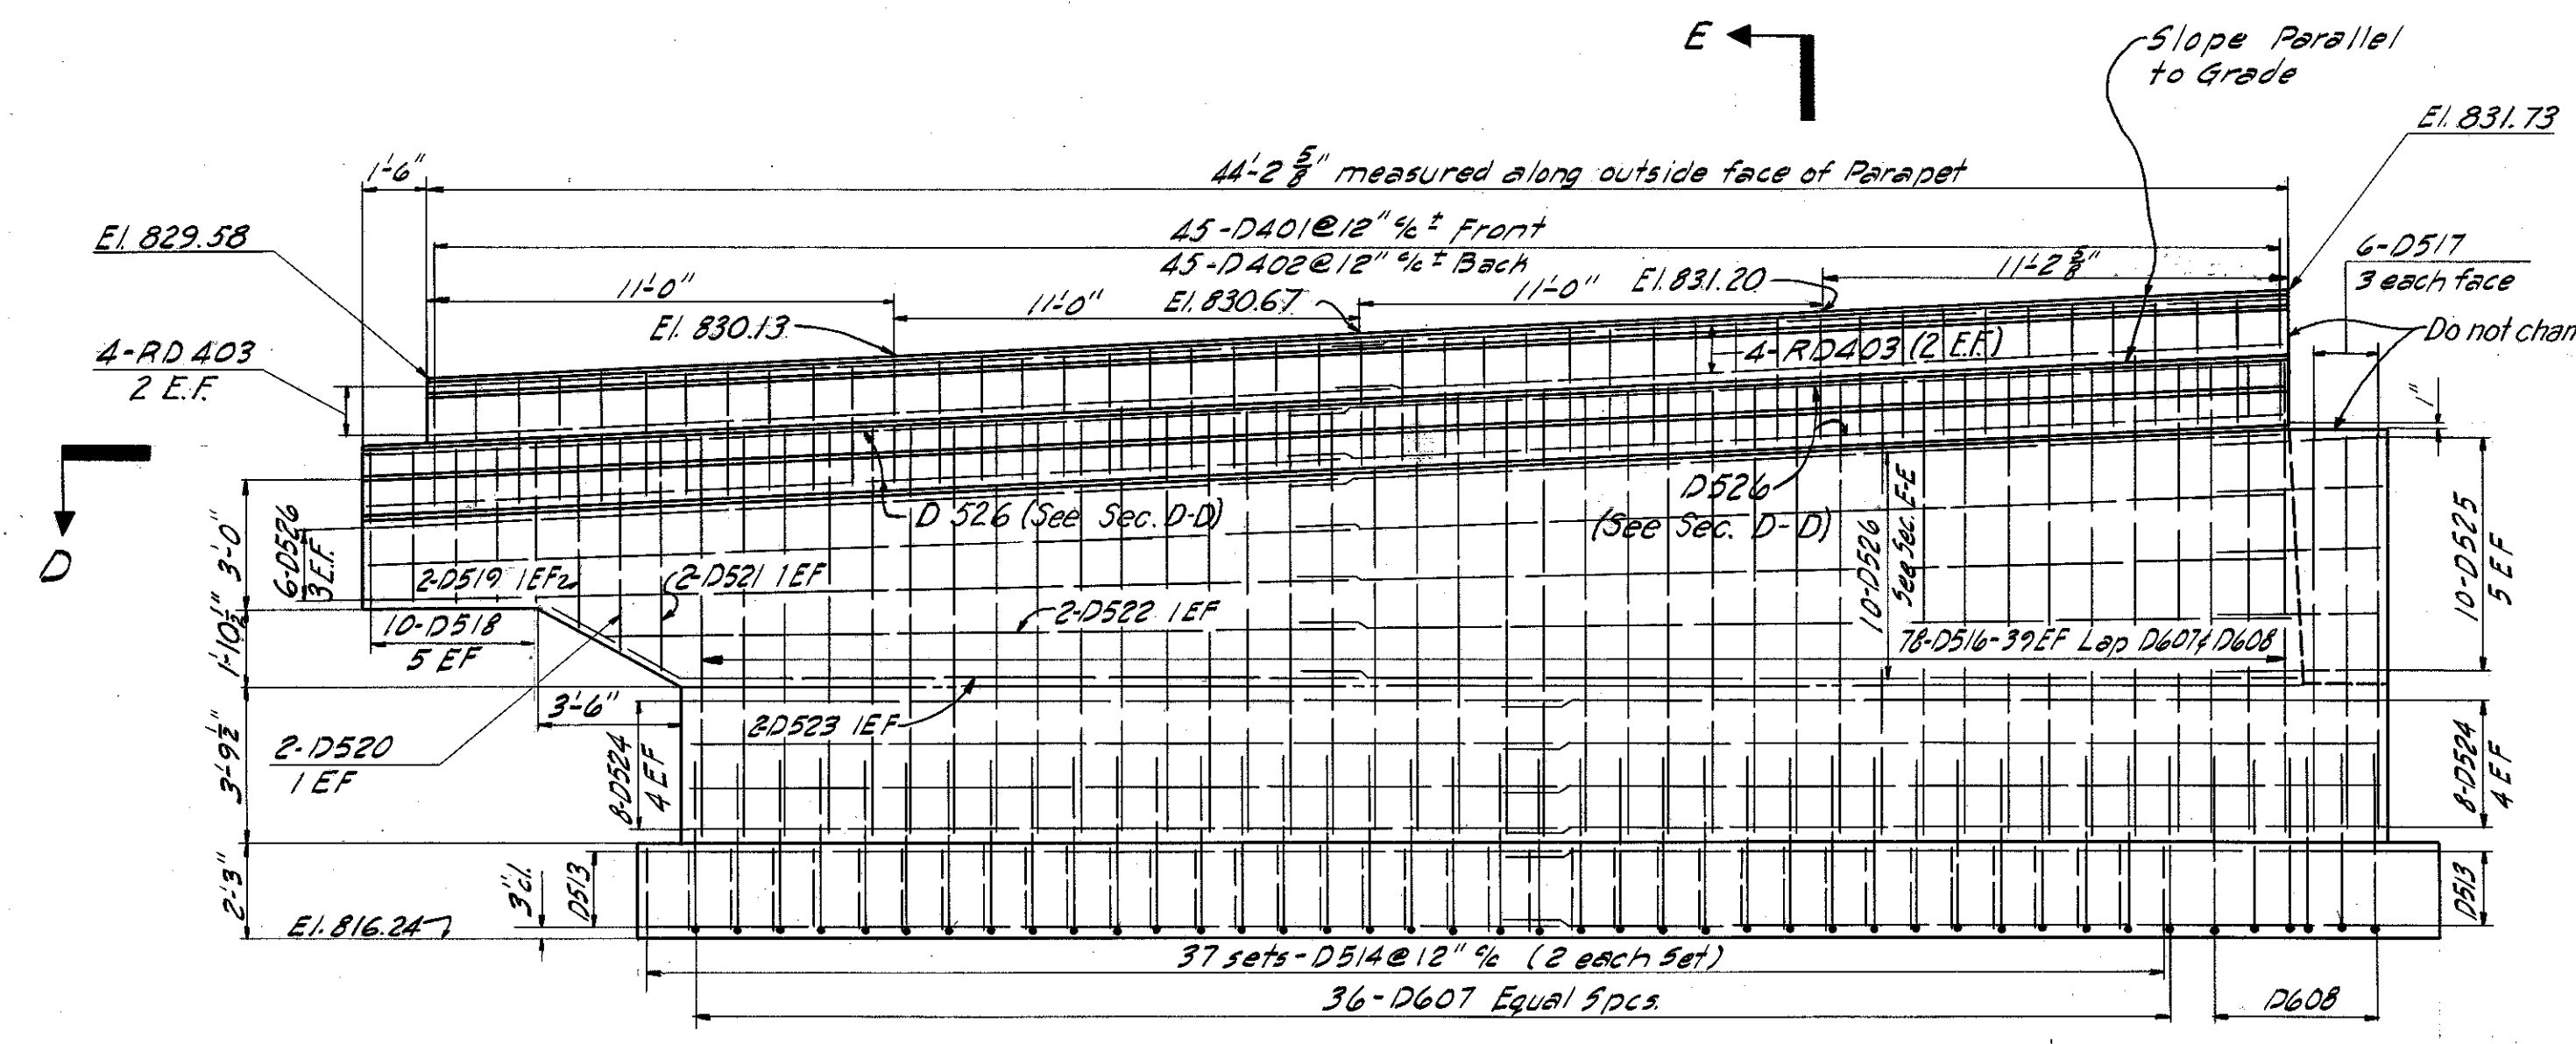 E
Slope Parallel
to Grade
El. 831.73
1'-6"
44'-2 5/8" measured along outside face of Parapet
El. 829.58
45-D401@12" c/c ± Front
45-D402@12" c/c ± Back
6-D517
3 each face
11'-0"
11'-0"
11'-0"
11'-2 5/8"
El. 830.13
El. 830.67
El. 831.20
4-RD 403
2 E.F.
4-RD403 (2 E.F.)
Do not cham
1"
D
D 526 (See Sec. D-D)
D526
(See Sec. D-D)
10-D526
See Sec. E-E
10-D525
5 EF
3'-0"
6-D526
3 E.F.
2-D519 1EF
2-D521 1EF
2-D522 1EF
10-D518
5 EF
1'-10 1/2"
78-D516-39EF Lap D607 & D608
3'-6"
2-D523 1EF
2-D520
1 EF
3'-9 1/2"
8-D524
4 EF
8-D524
4 EF
2'-3"
3" cl.
D513
D513
El. 816.24
37 sets-D514@12" c/c (2 each Set)
36-D607 Equal Spcs.
D608